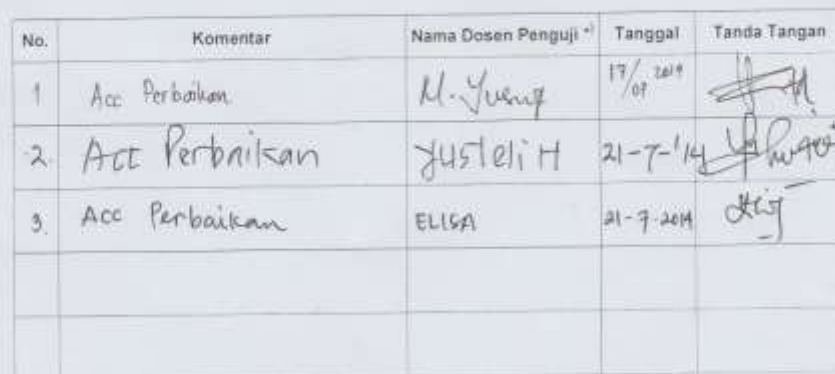 No. Komentar Nama Dosen Penguji *) Tanggal Tanda Tangan
1 Acc Perbaikan M. Yusuf 17/07 2014
2. Acc Perbaikan Yusleli H 21-7-'14
3. Acc Perbaikan ELISA 21-7-2014